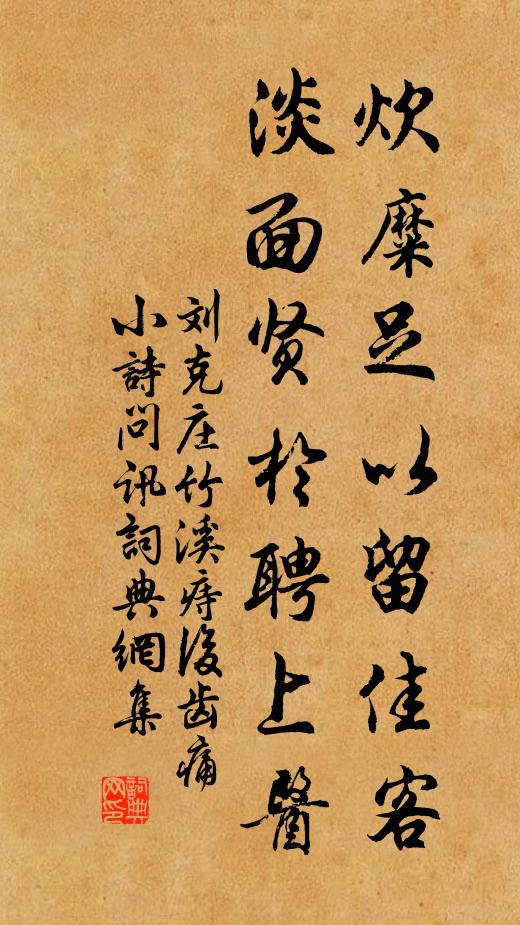 炊糜足以留佳客
淡面贤於聘上醫
刘克庄竹溪痔後齿痛
小詩問讯詞典網集
詞典
网印